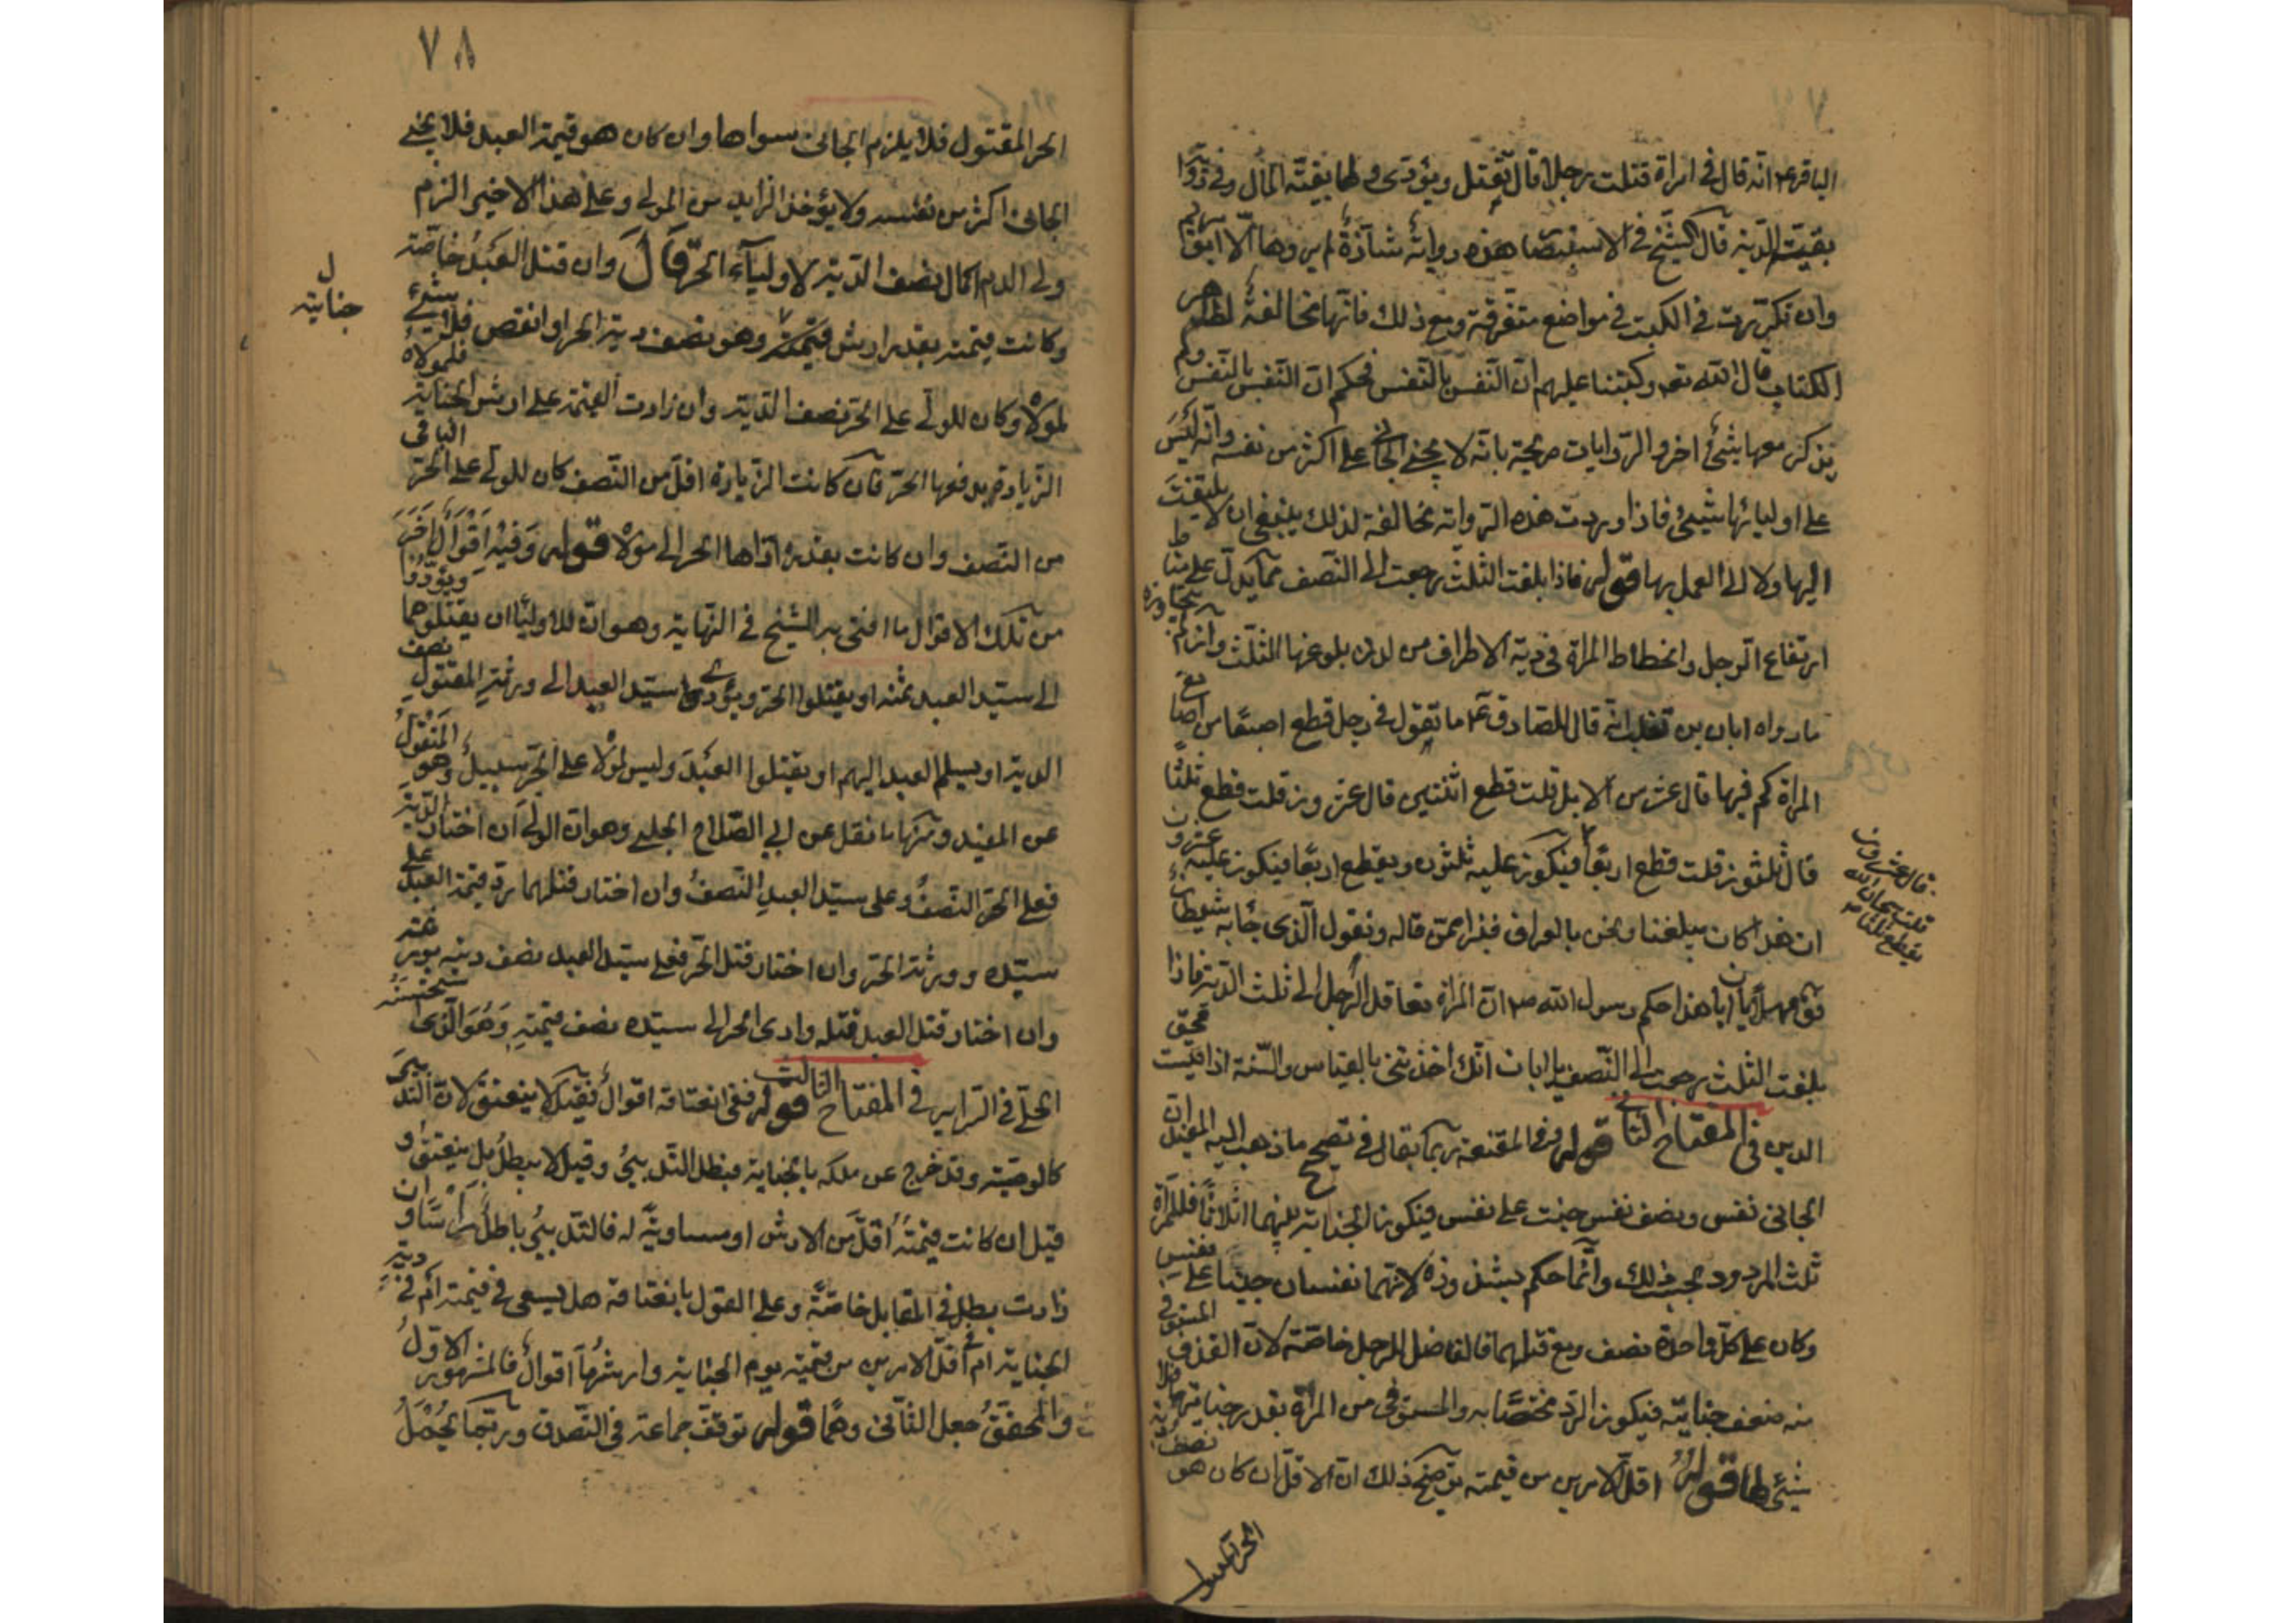 الباقر ع انه قال فى امراة قتلت رجلا قال تقتل ويؤدى وليها بقيته المال وفى رواية
بقيّت الدّية قال الشّيخ فى الاستبصار هذه رواية شاذة لم يروها الّا ابو مريم
وان تكررت فى الكتب فى مواضع متفرقة ومع ذلك فانها مخالفة لظاهر
الكتاب قال الله تعه وكتبنا عليهم انّ النّفس بالنّفس فحكم انّ النّفس بالنّفس ولم
يذكر معها شئ اخر والرّوايات صريحة بانّه لا يجنى الجانى على اكثر من نفسه وانّه ليس
على اوليائها شيئ فاذا وردت هذه الرّواية مخالفة لذلك ينبغى ان لا يلتفت
اليها ولا الى العمل بها قوله فاذا بلغت الثلث رجعت الى النّصف ممّا يدلّ على مناط
ارتفاع الرجل وانحطاط المراة فى دية الاطراف من لدن بلوغها الثّلث وان لم يتجاوزه
ما رواه ابان بن تغلب انّه قال للصّادق ع ما تقول فى رجل قطع اصبعًا من اصابع
المراة كم فيها قال عشر من الابل قلت قطع اثنتين قال عشرون قلت قطع ثلثًا
قال ثلثون قلت قطع اربعًا فيكون عليه ثلثون ويقطع اربعًا فيكون عليه عشرون
قال عشرون
قلت سبحان الله
يقطع ثلثا
ان هذا كان يبلغنا ونحن بالعراق فنبرا ممّن قاله ونقول الّذى جاء به شيطان
فق مهلًا يا ابان هذا حكم رسول الله ص انّ المراة تعاقل الرّجل الى ثلث الدّية فاذا
بلغت الثلث رجعت الى النّصف يا ابان انّك اخذتنى بالقياس والسّنة اذا قيست محق
الدين فى المفتاح الثانى قوله وفى المقنعة ربما يقال فى تصحيح ما ذهب اليه المفيد ان
الجانى نفس ونصف نفس جنت على نفس فيكون الجناية بينهما اثلاثًا فللمراة
ثلث المردود بحسب ذلك وانّما حكم بشذوذه لانّهما نفسان جنيتا على نفس
وكان على كلّ واحدة نصف ومع قتلهما فالفاضل للرجل خاصّة لانّ القدر المستوفى
منه ضعف جنايته فيكون الرّد مختصًّا به والمستوفى من المراة بقدر جنايتها فلا
شيئ لها قوله اقلّ الامرين من قيمته توضيح ذلك انّ الاقلّ ان كان هو نصف دية
الحر المقتول
٧٨
الحر المقتول فلا يلزم الجانى سواها وان كان هو قيمة العبد فلا يجنى
الجانى اكثر من نفسه ولا يؤخذ الزايد من المولى وعلى هذا الاخير الزم
ولى الدم اكمال نصف الدّية لاولياء الحرّ قال وان قتل العبد خاصّة
وكانت قيمته بقدر ارش جنايته وهو نصف دية الحر او انقص فلا شئ
جنايته ل
لمولاه وكان للولى على الحرّ نصف الدّية وان زادت القيمة على ارش الجناية فلمولاه
الزّيادة يدفعها الحرّ فان كانت الزّيادة اقلّ من النّصف كان للولى على الحرّ الباقى
من النّصف وان كانت بقدره ادّاها الحر الى مولاه قوله وفيه اقوال اخر
من تلك الاقوال ما افتى به الشّيخ فى النّهاية وهو انّ للاوليا ان يقتلوهما ويؤدّوا
الى سيّد العبد ثمنه او يقتلوا الحرّ ويؤدى سيّد العبد الى ورثة المقتول نصف
الدية او يسلم العبد اليهم او يقتلوا العبد وليس لمولاه على الحرّ سبيل وهو المنقول
عن المفيد ومنها ما نقل عن ابى الصّلاح الحلبى وهو انّ الولى ان اختار الدّية
فعلى الحرّ النّصف وعلى سيّد العبد النّصف وان اختار قتلهما ردّ قيمة العبد على
سيّده وورثة الحرّ وان اختار قتل الحرّ فعلى سيّد العبد نصف ديته لورثته
وان اختار قتل العبد قتله وادى الحر الى سيّده نصف قيمته وهو الّذى استحسنه
المحقّق فى الشرايع فى المفتاح الثالث قوله ففى انعتاقه اقوال فقيل لا ينعتق لانّ التّدبير
كالوصيّة وقد خرج عن ملكه بالجناية فبطل التّدبير وقيل لا يبطل بل ينعتق و
قيل ان كانت قيمته اقلّ من الارش او مساوية له فالتّدبير باطل راسًا وان
زادت بطل فى المقابل خاصّة وعلى القول بانعتاقه هل يسعى فى قيمته ام فى دية
الجناية ام فى اقلّ الامرين من قيمته يوم الجناية وارشها اقوال فالمشهور الاول
والمحقّق جعل الثّانى وهمًا قوله توقّف جماعة فى التّصدق وربّما يحمل